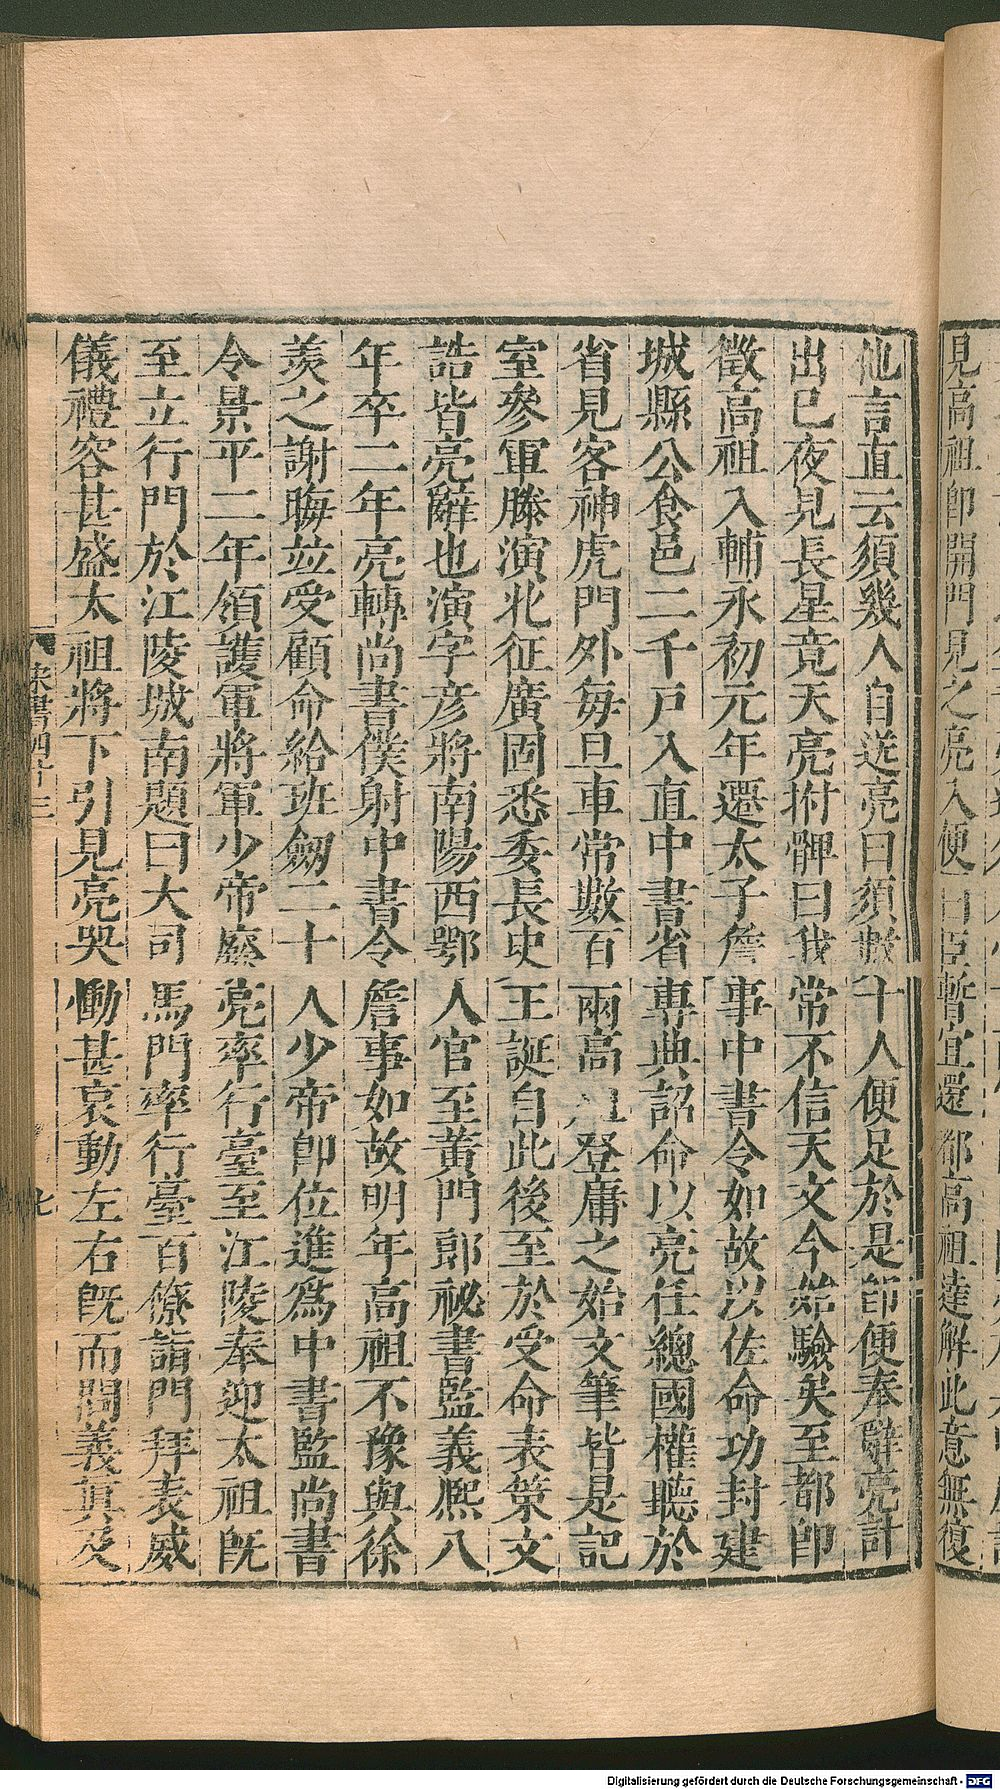 見高祖卽開門見之亮入便曰臣暫宜還都高祖達解此意無復
他言直云須幾人自送亮曰須數十人便足於是卽便奉辭亮計
出已夜見長星竟天亮拊髀曰我常不信天文今始驗矣至都卽
徵高祖入輔永初元年還太子詹事中書令如故以佐命功封建
城縣公食邑二千戶入直中書省專典詔命以亮任總國權聽於
省見客神虎門外每旦車常數百兩高祖登庸之始文筆皆是記
室參軍滕演北征廣固悉委長史王誕自此後至於受命表策文
誥皆亮辭也演字彥將南陽西鄂人官至黃門郎祕書監義熙八
年卒二年亮轉尚書僕射中書令詹事如故明年高祖不豫與徐
羨之謝晦並受顧命給班劒二十人少帝卽位進爲中書監尚書
令景平二年領護軍將軍少帝廢亮率行臺至江陵奉迎太祖旣
至立行門於江陵城南題曰大司馬門率行臺百僚詣門拜表威
儀禮容甚盛太祖將下引見亮哭慟甚哀動左右旣而問義眞及
宋書四十三
九
Digitalisierung gefördert durch die Deutsche Forschungsgemeinschaft - DFG